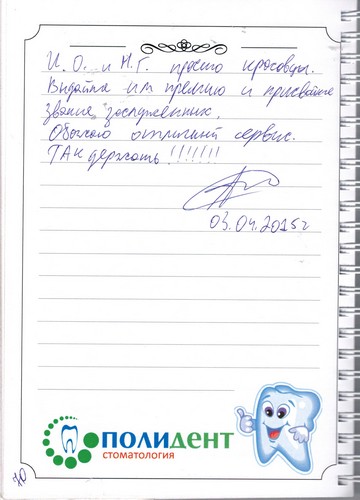 И. О. и Н.Г. просто красовцы.
Выдайте им премию и присвойте
звание "заслуженных.
Обожаю отличный сервис.
ТАк держать !!!!!!!
03.04.2015г
ПОЛИДЕНТ
СТОМАТОЛОГИЯ
70